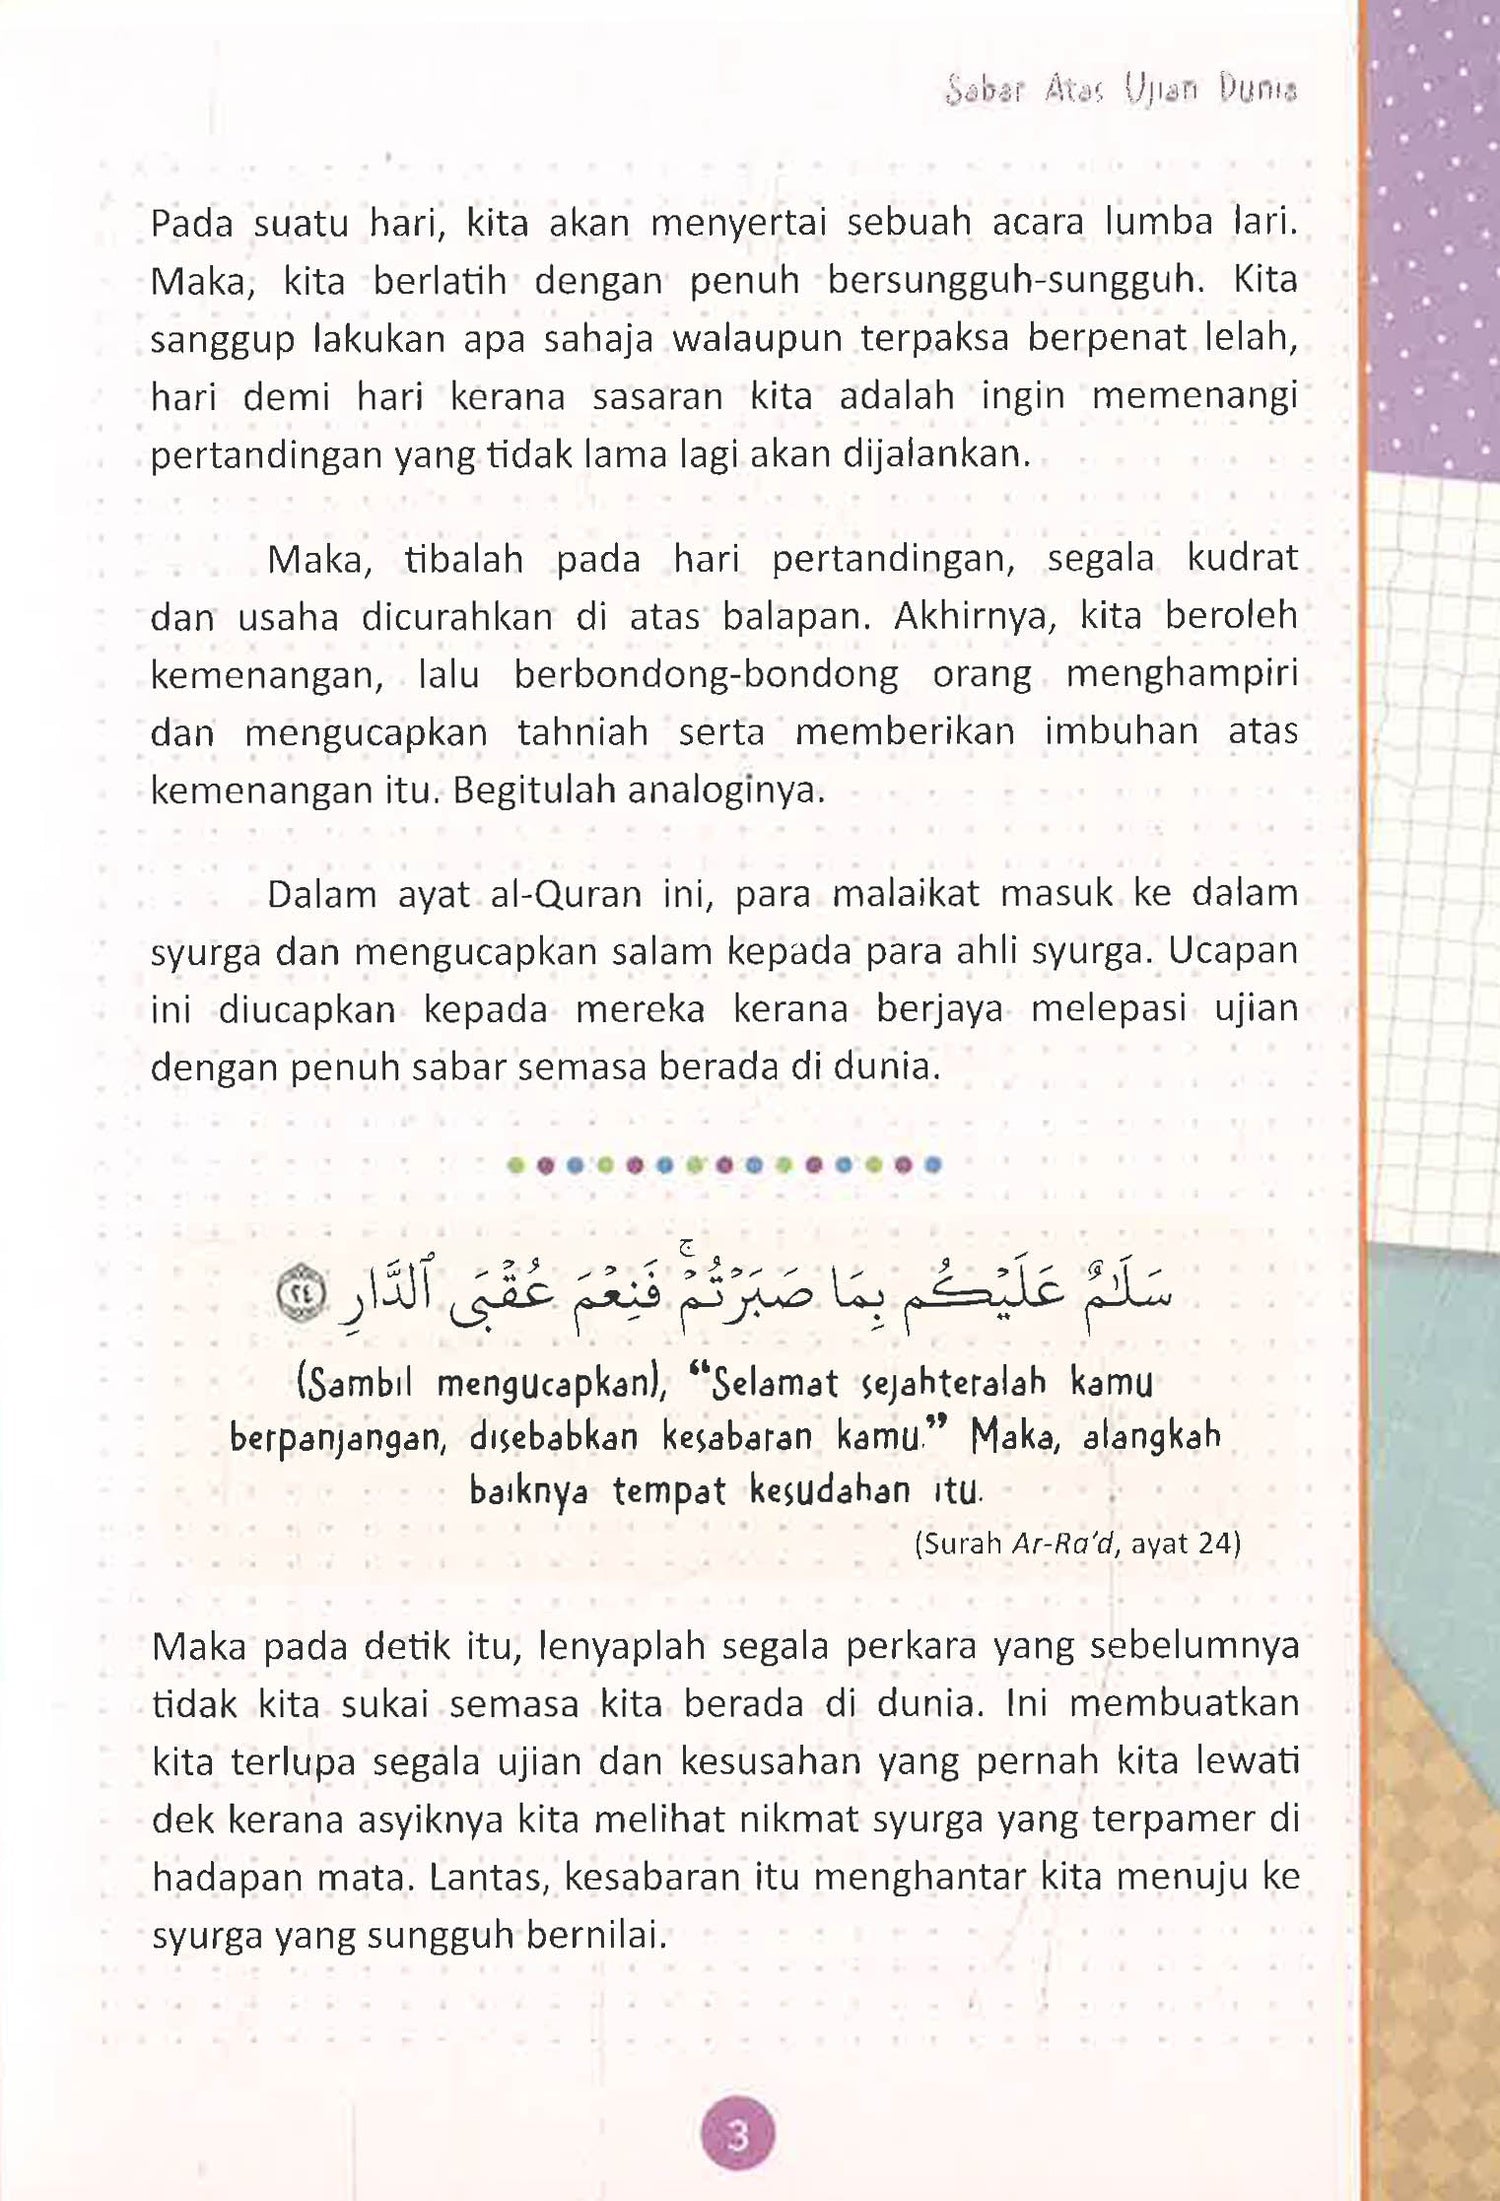 Sabar Atas Ujian Dunia
Pada suatu hari, kita akan menyertai sebuah acara lumba lari.
Maka, kita berlatih dengan penuh bersungguh-sungguh. Kita
sanggup lakukan apa sahaja walaupun terpaksa berpenat lelah,
hari demi hari kerana sasaran kita adalah ingin memenangi
pertandingan yang tidak lama lagi akan dijalankan.
Maka, tibalah pada hari pertandingan, segala kudrat
dan usaha dicurahkan di atas balapan. Akhirnya, kita beroleh
kemenangan, lalu berbondong-bondong orang menghampiri
dan mengucapkan tahniah serta memberikan imbuhan atas
kemenangan itu. Begitulah analoginya.
Dalam ayat al-Quran ini, para malaikat masuk ke dalam
syurga dan mengucapkan salam kepada para ahli syurga. Ucapan
ini diucapkan kepada mereka kerana berjaya melepasi ujian
dengan penuh sabar semasa berada di dunia.
سَلَـٰمٌ عَلَيْكُم بِمَا صَبَرْتُمْ ۚ فَنِعْمَ عُقْبَى ٱلدَّارِ ٢٤
(Sambil mengucapkan), “Selamat sejahteralah kamu
berpanjangan, disebabkan kesabaran kamu.” Maka, alangkah
baiknya tempat kesudahan itu.
(Surah Ar-Ra’d, ayat 24)
Maka pada detik itu, lenyaplah segala perkara yang sebelumnya
tidak kita sukai semasa kita berada di dunia. Ini membuatkan
kita terlupa segala ujian dan kesusahan yang pernah kita lewati
dek kerana asyiknya kita melihat nikmat syurga yang terpamer di
hadapan mata. Lantas, kesabaran itu menghantar kita menuju ke
syurga yang sungguh bernilai.
3